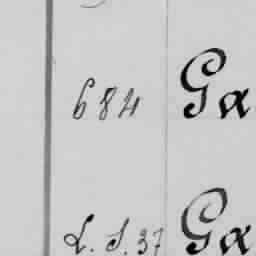 684 Ga
L. S. 37 Ga